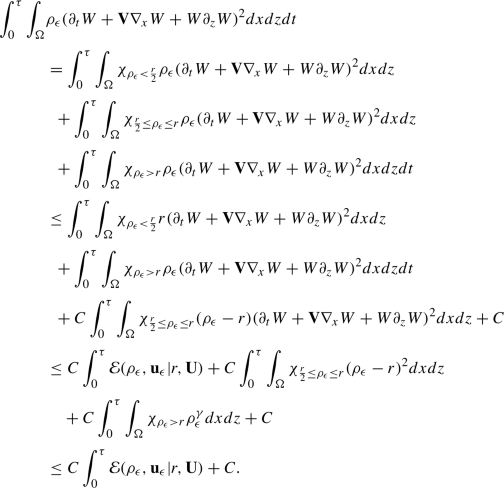 ∫₀^τ ∫_Ω ρ_ϵ(∂_t W + 𝐕∇_x W + W∂_z W)² dxdzdt
= ∫₀^τ ∫_Ω χ_{ρ_ϵ<r/2} ρ_ϵ(∂_t W + 𝐕∇_x W + W∂_z W)² dxdz
+ ∫₀^τ ∫_Ω χ_{r/2≤ρ_ϵ≤r} ρ_ϵ(∂_t W + 𝐕∇_x W + W∂_z W)² dxdz
+ ∫₀^τ ∫_Ω χ_{ρ_ϵ>r} ρ_ϵ(∂_t W + 𝐕∇_x W + W∂_z W)² dxdzdt
≤ ∫₀^τ ∫_Ω χ_{ρ_ϵ<r/2} r(∂_t W + 𝐕∇_x W + W∂_z W)² dxdz
+ ∫₀^τ ∫_Ω χ_{ρ_ϵ>r} ρ_ϵ(∂_t W + 𝐕∇_x W + W∂_z W)² dxdzdt
+ C ∫₀^τ ∫_Ω χ_{r/2≤ρ_ϵ≤r} (ρ_ϵ − r)(∂_t W + 𝐕∇_x W + W∂_z W)² dxdz + C
≤ C ∫₀^τ ℰ(ρ_ϵ, 𝐮_ϵ|r, 𝐔) + C ∫₀^τ ∫_Ω χ_{r/2≤ρ_ϵ≤r} (ρ_ϵ − r)² dxdz
+ C ∫₀^τ ∫_Ω χ_{ρ_ϵ>r} ρ_ϵ^γ dxdz + C
≤ C ∫₀^τ ℰ(ρ_ϵ, 𝐮_ϵ|r, 𝐔) + C.